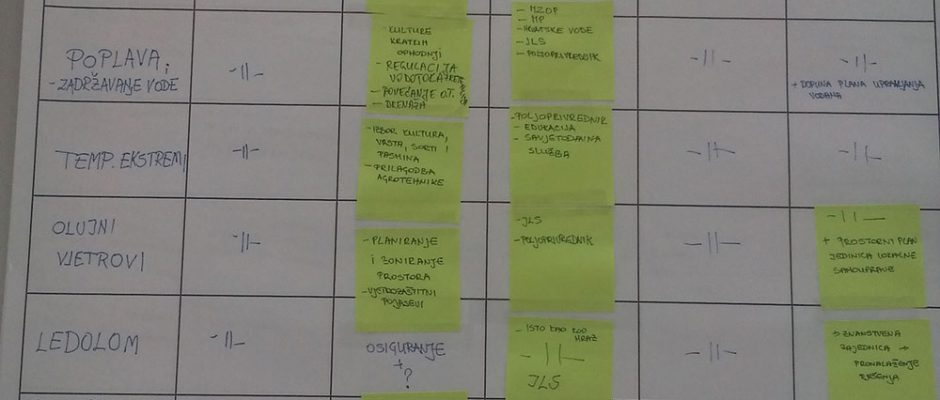 POPLAVA,
- ZADRŽAVANJE VODE
-||-
KULTURE
KRATKIH
OPHODNJI
- REGULACIJA
VODOTOKA
- POVEĆANJE O.T.
- DRENAŽA
- MZOP
- MP
- HRVATSKE VODE
- JLS
- POLJOPRIVREDNIK
-||-
-||-
+ DOPUNA PLANA UPRAVLJANJA
VODAMA
TEMP. EKSTREMI
-||-
- IZBOR KULTURA,
VRSTA, SORTI I
PASMINA
- PRILAGODBA
AGROTEHNIKE
- POLJOPRIVREDNIK
- EDUKACIJA
- SAVJETODAVNA
SLUŽBA
-||-
-||-
OLUJNI
VJETROVI
-||-
- PLANIRANJE
I ZONIRANJE
PROSTORA
- VJETROZAŠTITNI
POJASEVI
- JLS
- POLJOPRIVREDNIK
-||-
-||-
+ PROSTORNI PLAN
JEDINICA LOKALNE
SAMOUPRAVE
LEDOLOM
-||-
OSIGURANJE
+
?
- ISTO KAO KOD
MRAZ
-||-
JLS
-||-
→ ZNANSTVENA
ZAJEDNICA →
PRONALAŽENJE
RJEŠENJA